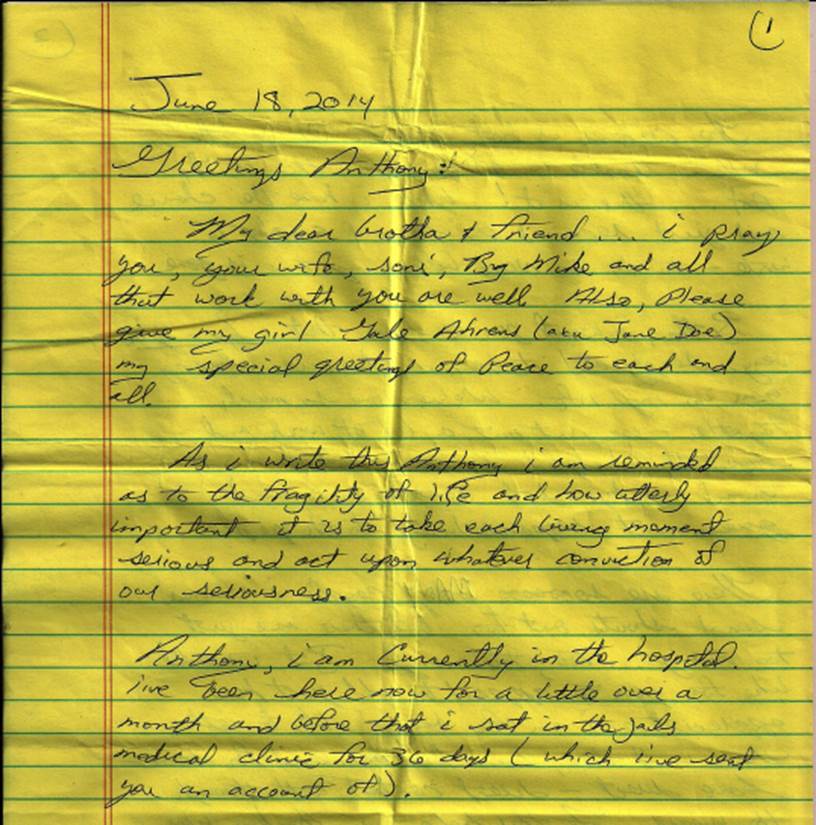 1
June 18, 2014
Greetings Anthony:!
My dear brotha & friend ... i pray
you, your wife, sons', Big Mike and all
that work with you are well. Also, Please
give my girl Gale Ahrens (aka Jane Doe)
my special greetings of Peace to each and
all.
As i write this Anthony i am reminded
as to the fragility of life and how utterly
important it is to take each living moment
serious and act upon whatever conviction of
our seriousness.
Anthony, i am Currently in the hospital.
i've been here now for a little over a
month and before that i sat in the jails
medical clinic for 36 days (which i've sent
you an account of).